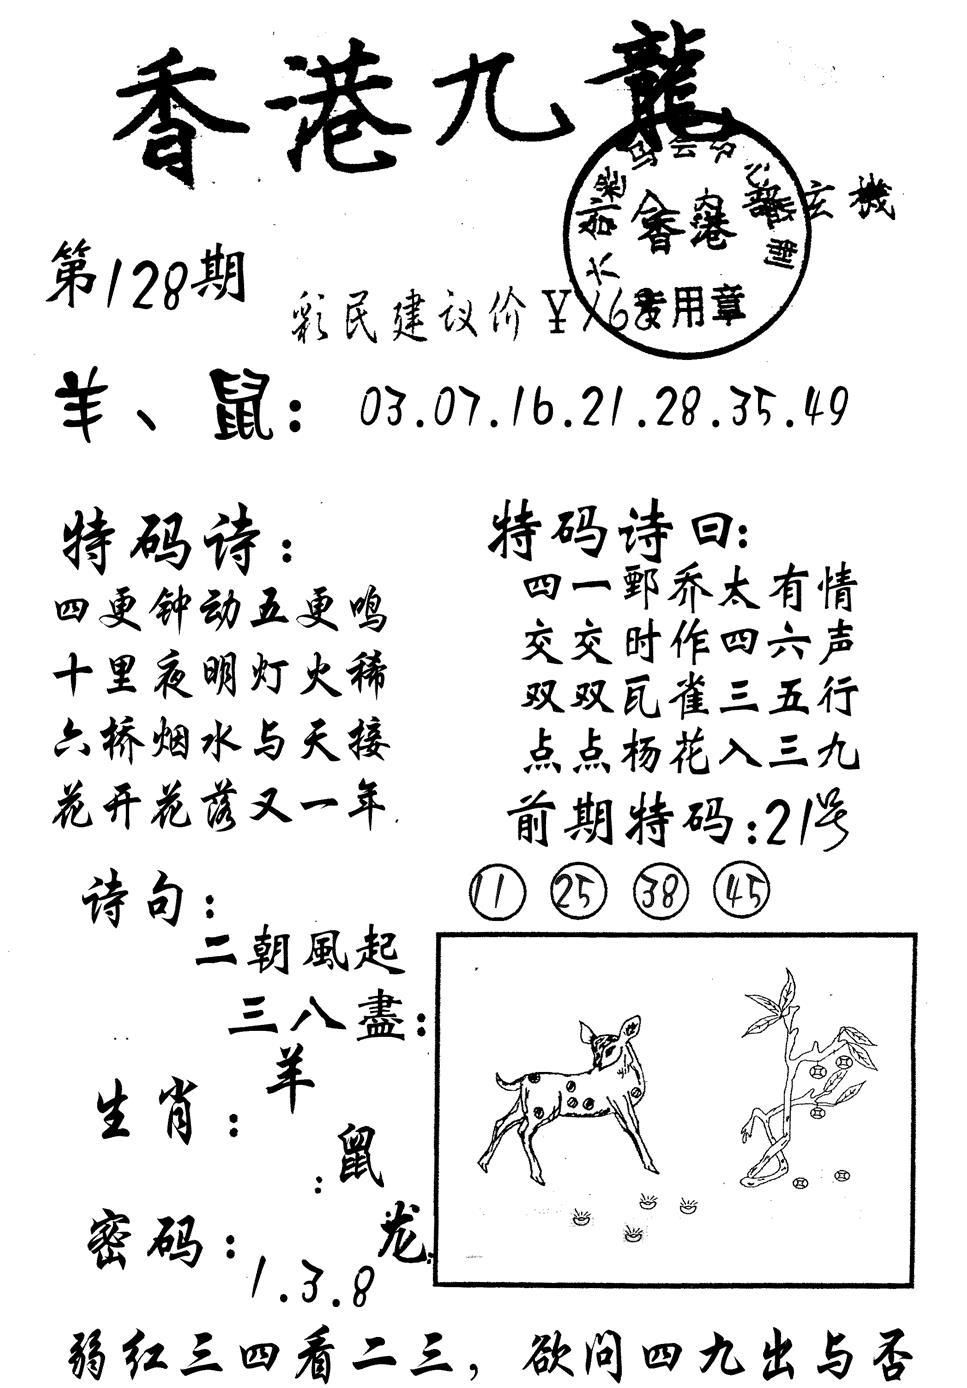 香港九龍
内部玄機
香港
专用章
第128期
彩民建议价￥168
羊、鼠：03.07.16.21.28.35.49
特码诗：
四更钟动五更鸣
十里夜明灯火稀
六桥烟水与天接
花开花落又一年
特码诗曰：
四一鄄乔太有情
交交时作四六声
双双瓦雀三五行
点点杨花入三九
前期特码：21号
11 25 38 45
诗句：
二朝風起
三八盡：
生肖：羊
：鼠
龙
密码：
1.3.8
弱红三四看二三，欲问四九出与否